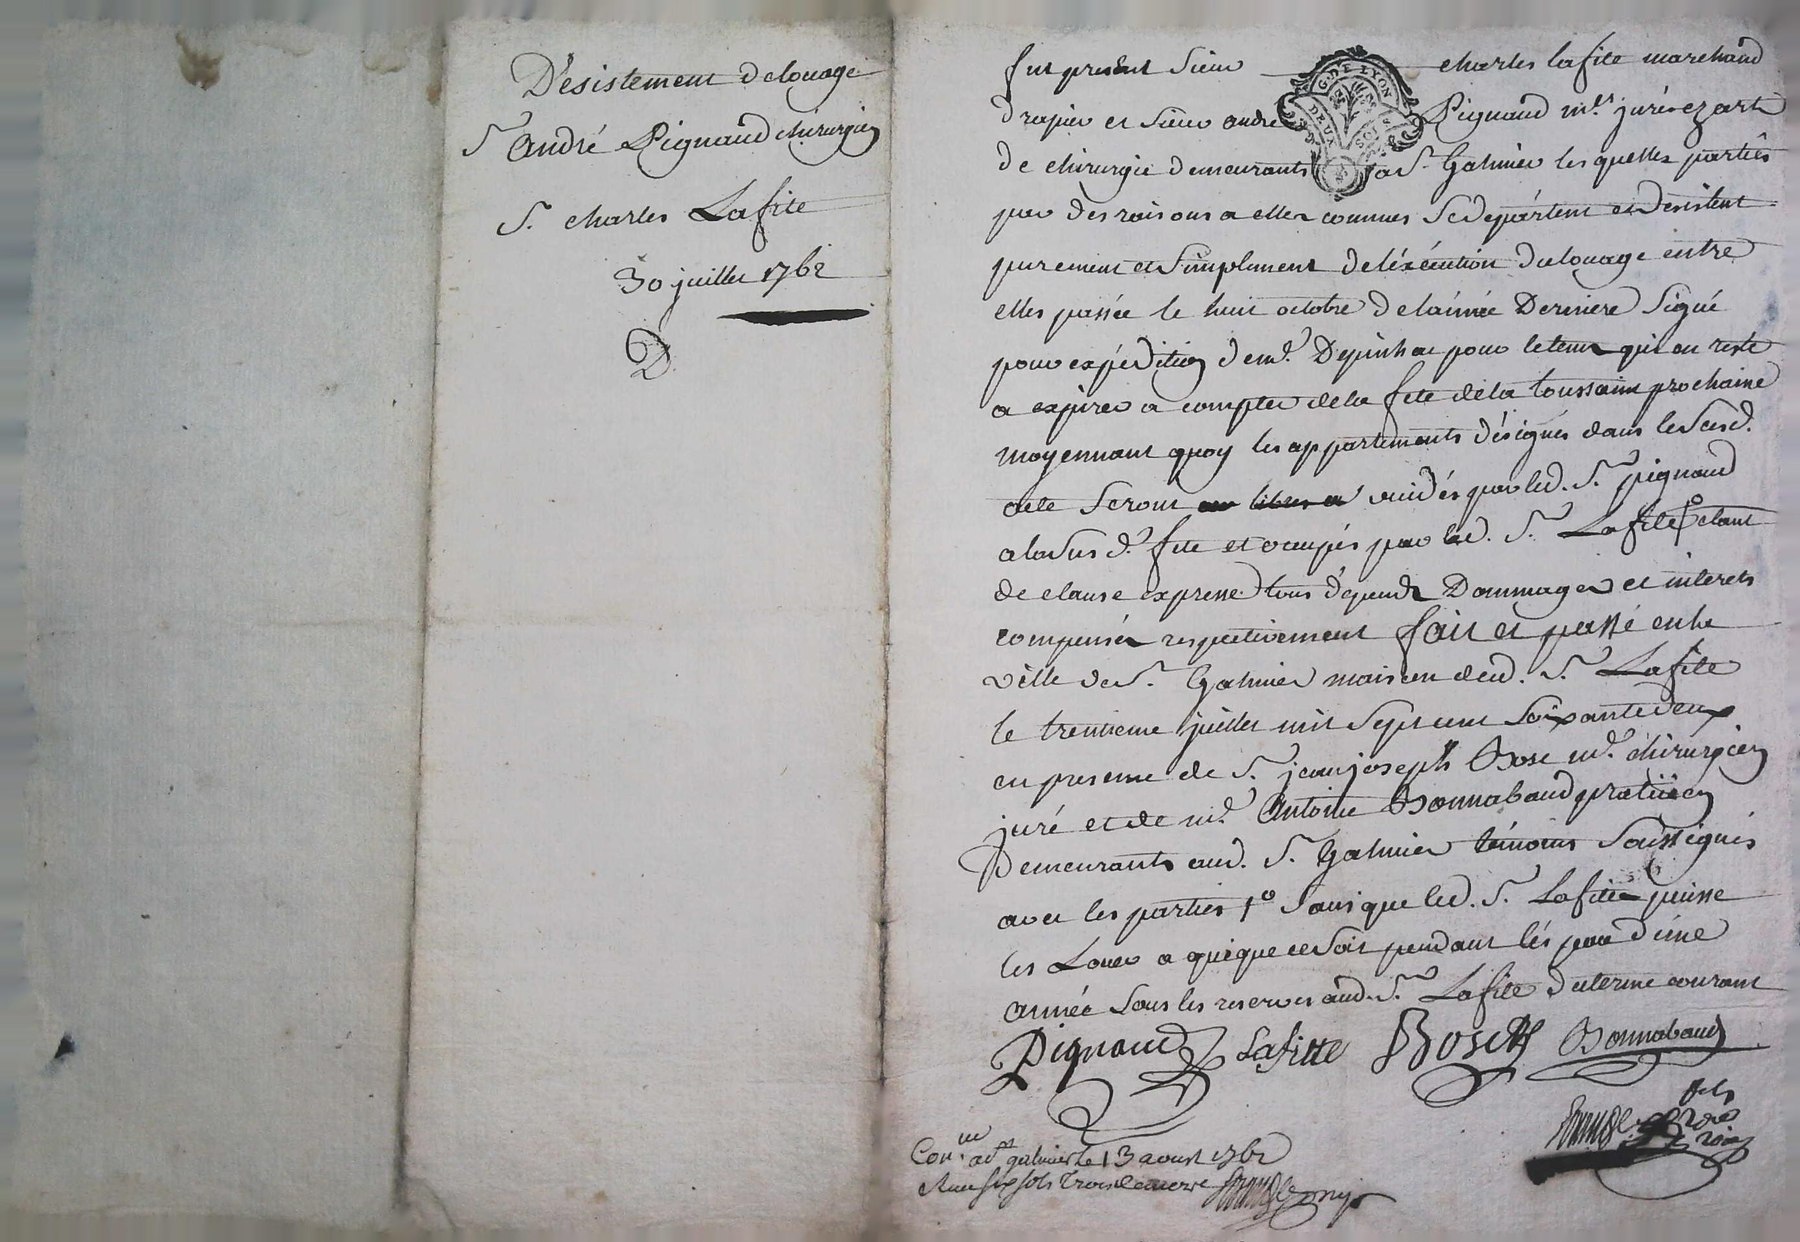 Désistement delouage
Sr André Pignaud chirurgien
S. charles Lafite
30 juillet 1762
D
fut present Sieur charles lafite marchand
G. DE LYON
DEUX SOLS
drapier et Sieur andre Pignaud mtr juré ez arts
de chirurgie demeurants a St Galmier les quelles parties
pour des raisons a elles connues Se departent et desistent
purement et Simplement de l'éxécution dulouage entre
elles passée le huit octobre de l'année Derniere Signé
pour expédition de me. Depinhac pour letems qui en reste
a expirer a compter de la fete de la toussaint prochaine
moyennant quoy les appartements désignés dans le Susd.
acte Seront vuidés par led. Sr pignaud
a lad Susd. fete et occupés par led. Sr Lafite po etant
de clause expresse tous dépends Dommages et interets
compensés respectivement fait et passé en la
ville de St. Galmier maison dud. Sr Lafite
le trentieme juillet mil Sept cent Soixante deux
en presence de Sr. jean joseph Bosc me. chirurgien
juré et de me. Antoine Bonnabaud praticien
Demeurants aud. St. Galmier témoins Soussignés
avec les parties po Sans que led. Sr. Lafite puisse
les Louer a qui que ce Soit pendant lés pace d'une
année Sous les reserves aud. Sr Lafite du terme courant
Pignaud Lafitte Bosc Bonnabaud
Con.lle a St galmier le 13 aoust 1762
Reçu six sols trois deniers